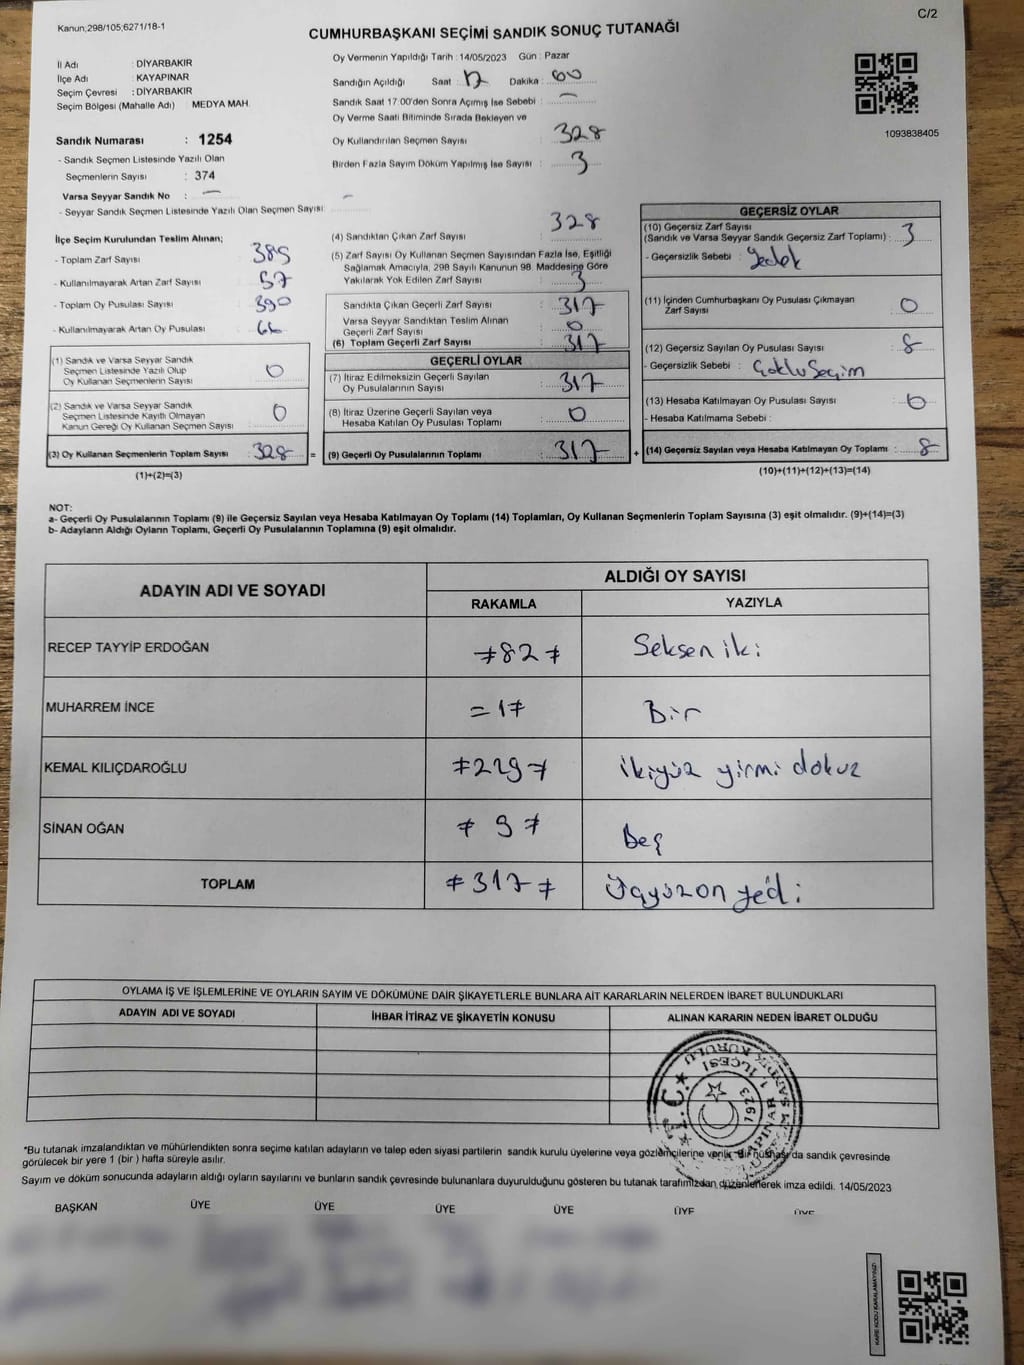 Kanun;298/105;6271/18-1
C/2
CUMHURBAŞKANI SEÇİMİ SANDIK SONUÇ TUTANAĞI
İl Adı : DİYARBAKIR
İlçe Adı : KAYAPINAR
Seçim Çevresi : DİYARBAKIR
Seçim Bölgesi (Mahalle Adı) : MEDYA MAH.
Sandık Numarası : 1254
- Sandık Seçmen Listesinde Yazılı Olan
Seçmenlerin Sayısı : 374
Varsa Seyyar Sandık No : —
- Seyyar Sandık Seçmen Listesinde Yazılı Olan Seçmen Sayısı: –
Oy Vermenin Yapıldığı Tarih : 14/05/2023 Gün : Pazar
Sandığın Açıldığı Saat : 17 Dakika : 00
Sandık Saat 17.00'den Sonra Açımış İse Sebebi : —
Oy Verme Saati Bitiminde Sırada Bekleyen ve
Oy Kullandırılan Seçmen Sayısı : 328
Birden Fazla Sayım Döküm Yapılmış İse Sayısı : 3
1093838405
İlçe Seçim Kurulundan Teslim Alınan;
- Toplam Zarf Sayısı : 385
- Kullanılmayarak Artan Zarf Sayısı : 57
- Toplam Oy Pusulası Sayısı : 390
- Kullanılmayarak Artan Oy Pusulası : 66
(1) Sandık ve Varsa Seyyar Sandık
Seçmen Listesinde Yazılı Olup
Oy Kullanan Seçmenlerin Sayısı : 0
(2) Sandık ve Varsa Seyyar Sandık
Seçmen Listesinde Kayıtlı Olmayan
Kanun Gereği Oy Kullanan Seçmen Sayısı : 0
(3) Oy Kullanan Seçmenlerin Toplam Sayısı : 328 =
(1)+(2)=(3)
(4) Sandıktan Çıkan Zarf Sayısı : 328
(5) Zarf Sayısı Oy Kullanan Seçmen Sayısından Fazla İse, Eşitliği
Sağlamak Amacıyla, 298 Sayılı Kanunun 98. Maddesine Göre
Yakılarak Yok Edilen Zarf Sayısı : 3
Sandıkta Çıkan Geçerli Zarf Sayısı : 317
Varsa Seyyar Sandıktan Teslim Alınan
Geçerli Zarf Sayısı : 0
(6) Toplam Geçerli Zarf Sayısı : 317
GEÇERLİ OYLAR
(7) İtiraz Edilmeksizin Geçerli Sayılan
Oy Pusulalarının Sayısı : 317
(8) İtiraz Üzerine Geçerli Sayılan veya
Hesaba Katılan Oy Pusulası Toplamı : 0
(9) Geçerli Oy Pusulalarının Toplamı : 317 +
GEÇERSİZ OYLAR
(10) Geçersiz Zarf Sayısı
(Sandık ve Varsa Seyyar Sandık Geçersiz Zarf Toplamı) : 3
- Geçersizlik Sebebi :
(11) İçinden Cumhurbaşkanı Oy Pusulası Çıkmayan
Zarf Sayısı : 0
(12) Geçersiz Sayılan Oy Pusulası Sayısı : 8
- Geçersizlik Sebebi : Çoklu Seçim
(13) Hesaba Katılmayan Oy Pusulası Sayısı : 0
- Hesaba Katılmama Sebebi :
(14) Geçersiz Sayılan veya Hesaba Katılmayan Oy Toplamı : 8
(10)+(11)+(12)+(13)=(14)
NOT:
a- Geçerli Oy Pusulalarının Toplamı (9) ile Geçersiz Sayılan veya Hesaba Katılmayan Oy Toplamı (14) Toplamları, Oy Kullanan Seçmenlerin Toplam Sayısına (3) eşit olmalıdır. (9)+(14)=(3)
b- Adayların Aldığı Oyların Toplamı, Geçerli Oy Pusulalarının Toplamına (9) eşit olmalıdır.
ADAYIN ADI VE SOYADI
ALDIĞI OY SAYISI
RAKAMLA YAZIYLA
RECEP TAYYİP ERDOĞAN ≠82≠ Seksen iki
MUHARREM İNCE =1≠ Bir
KEMAL KILIÇDAROĞLU ≠229≠ ikiyüz yirmi dokuz
SİNAN OĞAN ≠ 5 ≠ Beş
TOPLAM ≠317≠ Üçyüzon yedi
OYLAMA İŞ VE İŞLEMLERİNE VE OYLARIN SAYIM VE DÖKÜMÜNE DAİR ŞİKAYETLERLE BUNLARA AİT KARARLARIN NELERDEN İBARET BULUNDUKLARI
ADAYIN ADI VE SOYADI İHBAR İTİRAZ VE ŞİKAYETİN KONUSU ALINAN KARARIN NEDEN İBARET OLDUĞU
T.C. 1923
*Bu tutanak imzalandıktan ve mühürlendikten sonra seçime katılan adayların ve talep eden siyasi partilerin sandık kurulu üyelerine veya gözlemcilerine verilir, bir nüshası da sandık çevresinde
görülecek bir yere 1 (bir ) hafta süreyle asılır.
Sayım ve döküm sonucunda adayların aldığı oyların sayılarını ve bunların sandık çevresinde bulunanlara duyurulduğunu gösteren bu tutanak tarafımızdan düzenlenerek imza edildi. 14/05/2023
BAŞKAN ÜYE ÜYE ÜYE ÜYE ÜYE ÜYE
KARE KODU KARALAMAYINIZ!